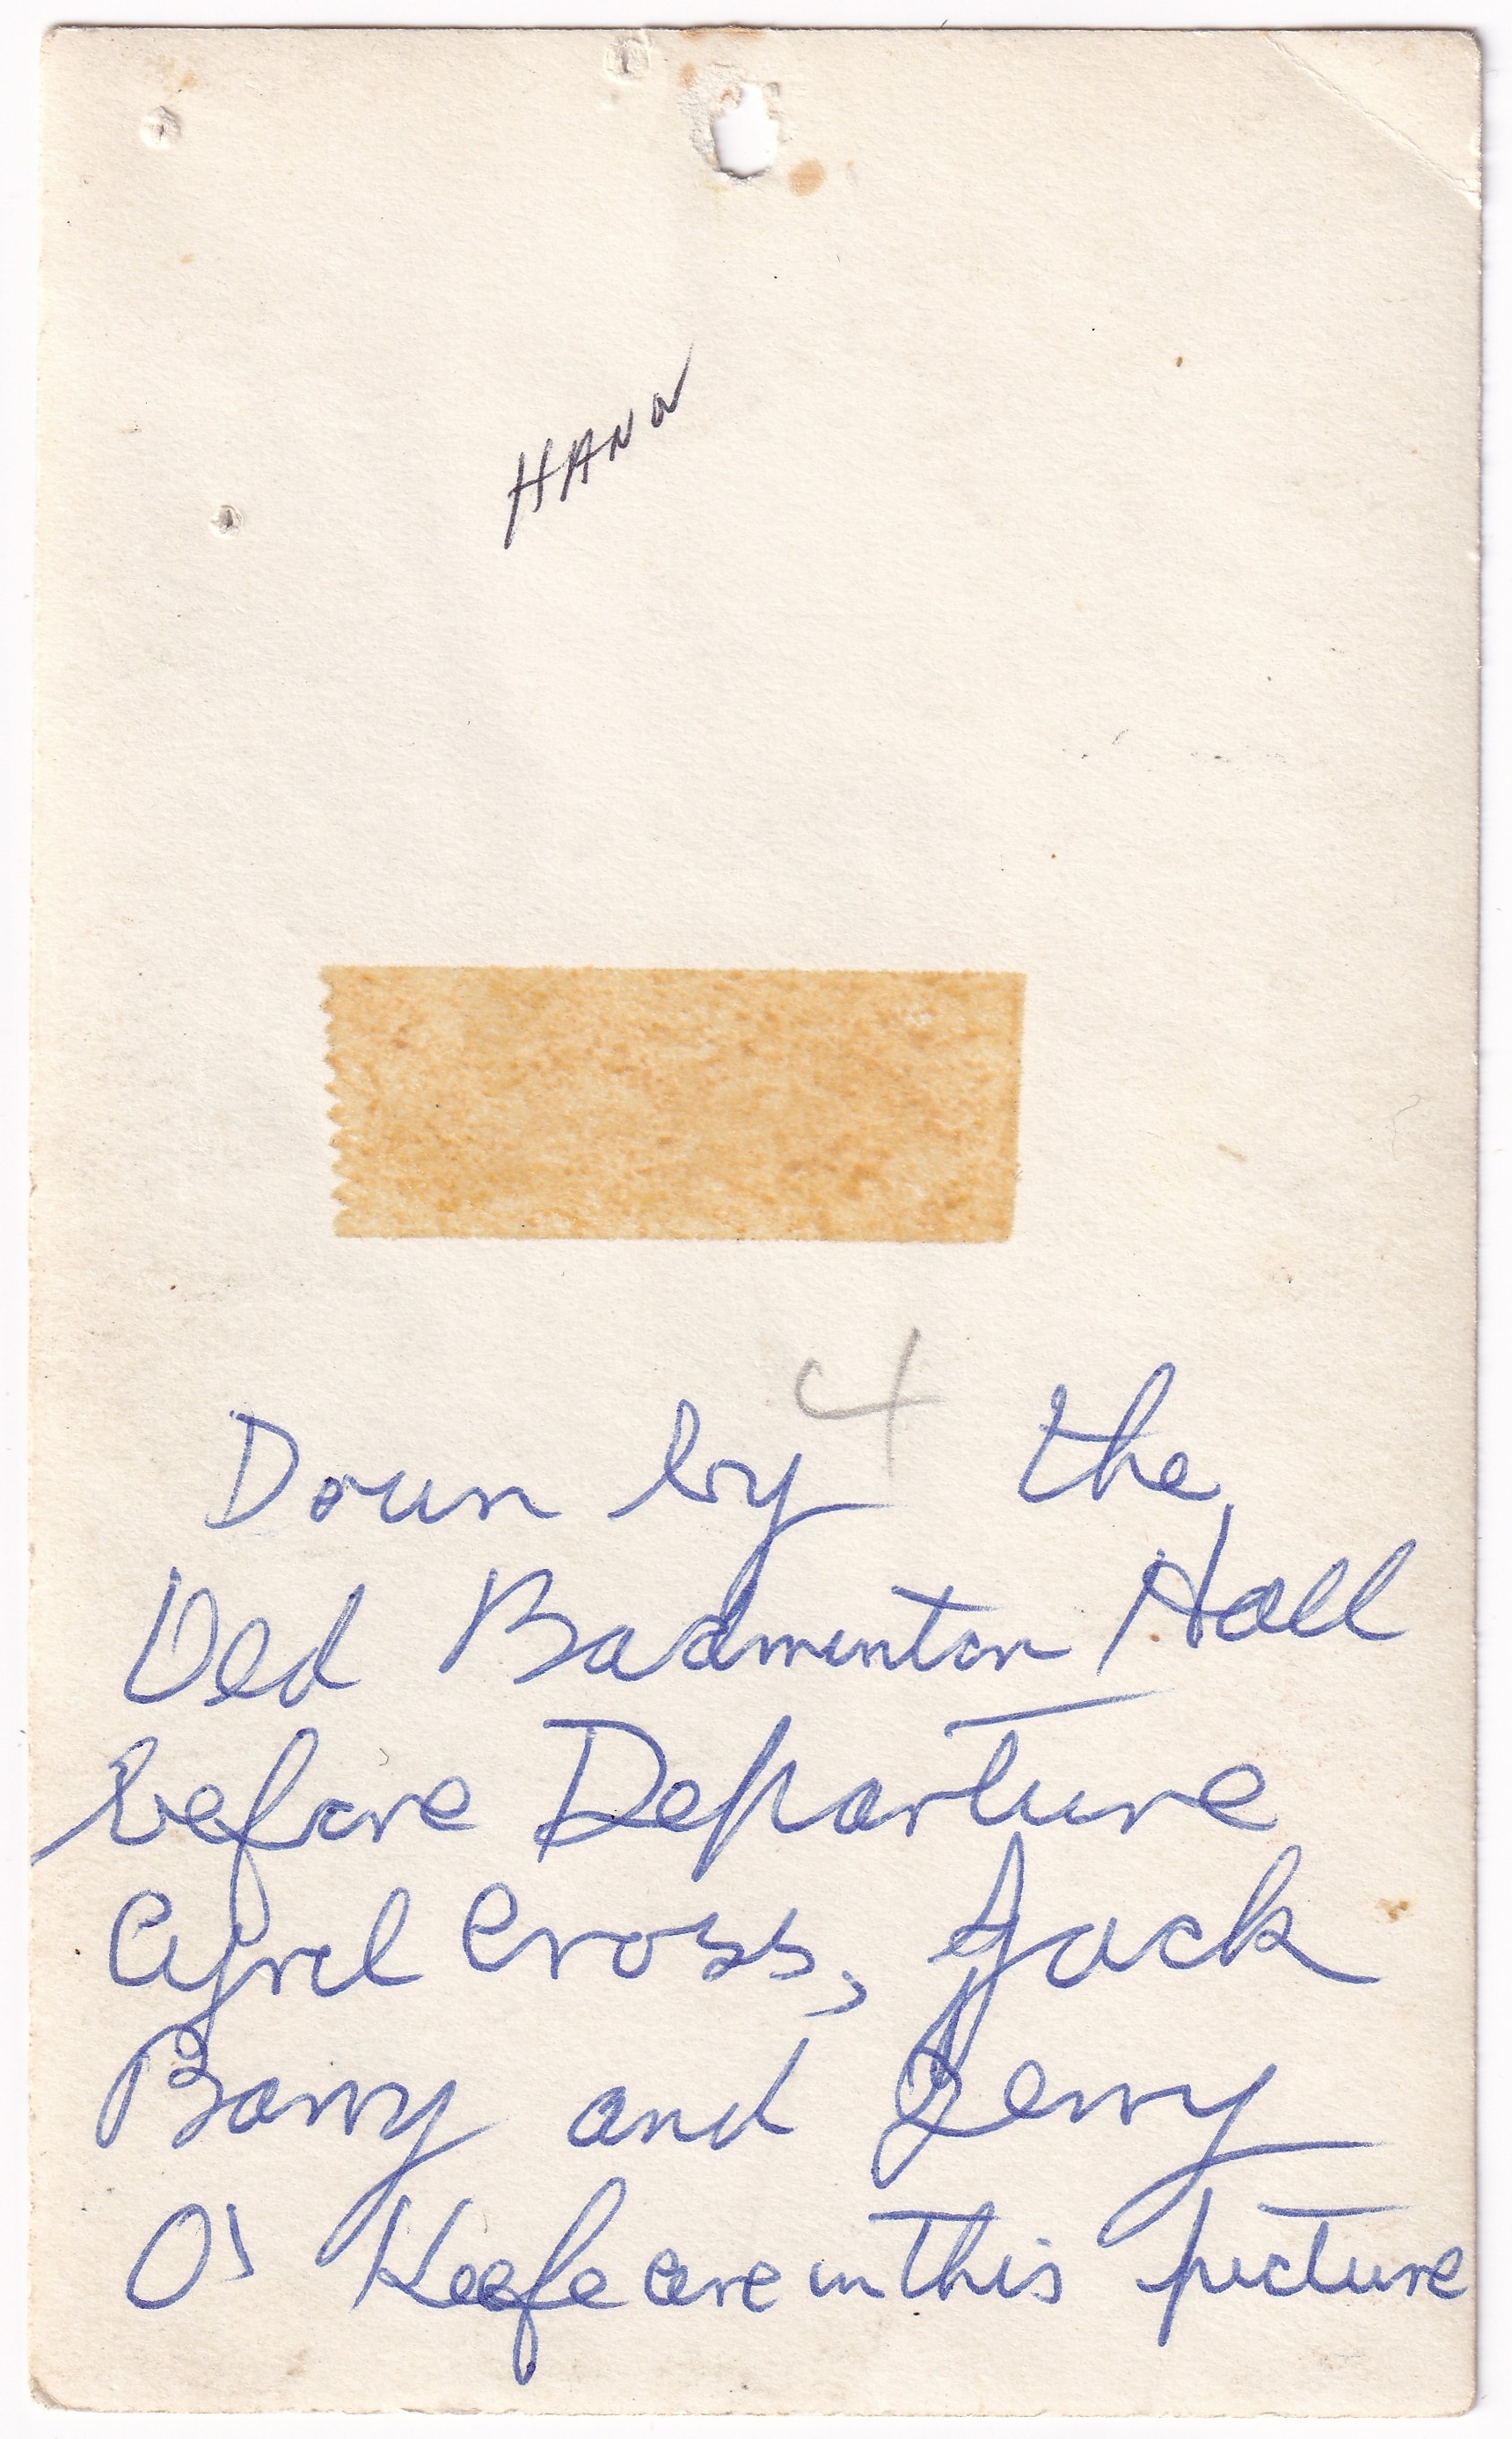 4
Down by the
Old Badminton Hall
before Departure
Cyril Cross, Jack
Barry and Gerry
O' Keefe are in this picture